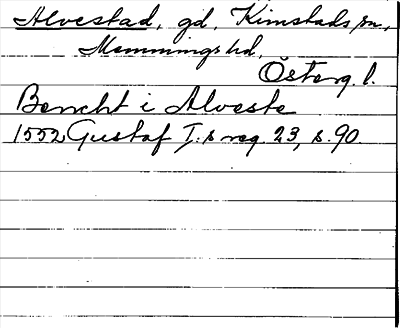 Alvestad, gd, Kimstads sn,
Memmings hd,
Österg. l.
Bencht i Alveste
1552 Gustaf I:s reg. 23, s. 90.